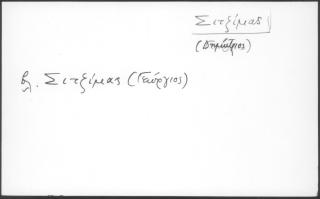 Σιτζίμας
(Δημήτριος)
βλ. Σιτζίμας (Γεώργιος)